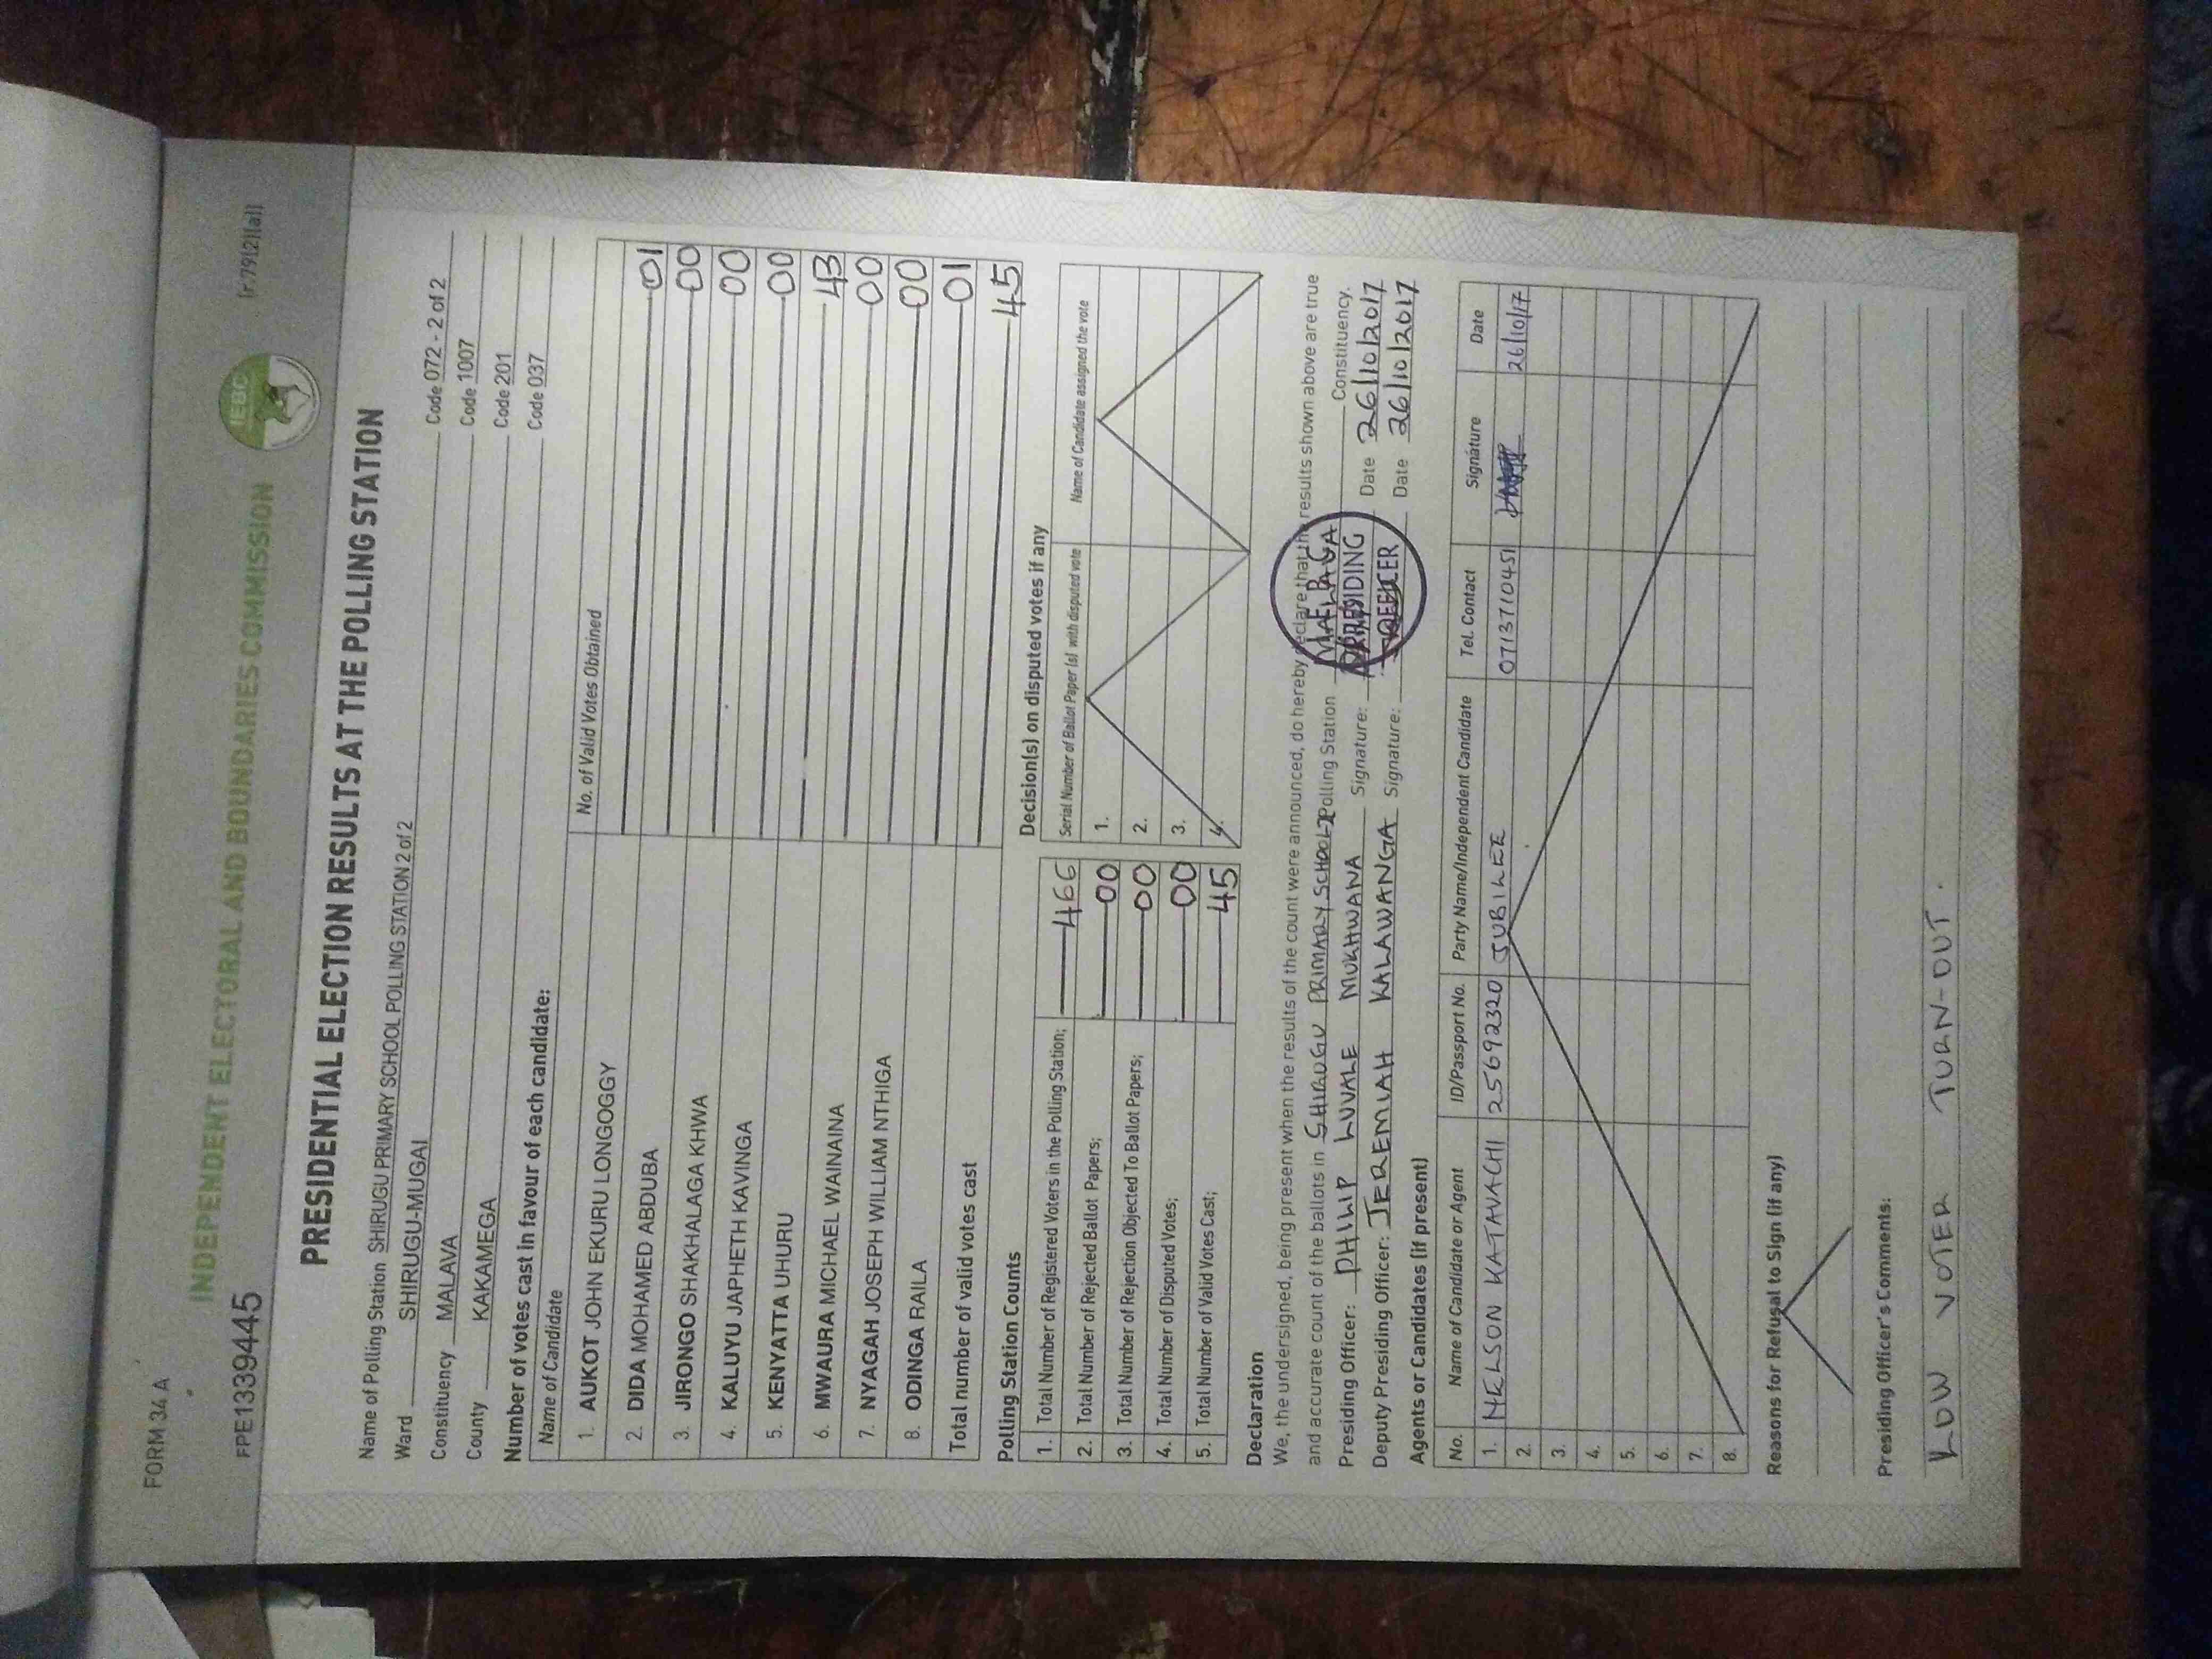 FORM 34 A
INDEPENDENT ELECTORAL AND BOUNDARIES COMMISSION
IEBC
(r.79(2)(a))
FPE1339445
PRESIDENTIAL ELECTION RESULTS AT THE POLLING STATION
Name of Polling Station SHIRUGU PRIMARY SCHOOL POLLING STATION 2 of 2 Code 072 - 2 of 2
Ward SHIRUGU-MUGAI Code 1007
Constituency MALAVA Code 201
County KAKAMEGA Code 037
Number of votes cast in favour of each candidate:
Name of Candidate No. of Valid Votes Obtained
1. AUKOT JOHN EKURU LONGOGGY 01
2. DIDA MOHAMED ABDUBA 00
3. JIRONGO SHAKHALAGA KHWA 00
4. KALUYU JAPHETH KAVINGA 00
5. KENYATTA UHURU 43
6. MWAURA MICHAEL WAINAINA 00
7. NYAGAH JOSEPH WILLIAM NTHIGA 00
8. ODINGA RAILA 01
Total number of valid votes cast 45
Polling Station Counts
1. Total Number of Registered Voters in the Polling Station; 466
2. Total Number of Rejected Ballot Papers; 00
3. Total Number of Rejection Objected To Ballot Papers; 00
4. Total Number of Disputed Votes; 00
5. Total Number of Valid Votes Cast; 45
Decision(s) on disputed votes if any
Serial Number of Ballot Paper (s) with disputed vote Name of Candidate assigned the vote
1.
2.
3.
4.
Declaration
We, the undersigned, being present when the results of the count were announced, do hereby declare that the results shown above are true
and accurate count of the ballots in SHIRUGU PRIMARY SCHOOL-2 Polling Station MALAVA Constituency.
Presiding Officer: PHILIP LUVALE MUKHWANA Signature: Date 26/10/2017
Deputy Presiding Officer: JEREMIAH KALAWANGA Signature: Date 26/10/2017
PRESIDING
OFFICER
Agents or Candidates (if present)
No. Name of Candidate or Agent ID/Passport No. Party Name/Independent Candidate Tel. Contact Signature Date
1. NELSON KATAVACHI 25692320 JUBILEE 0713710451 26/10/17
2.
3.
4.
5.
6.
7.
8.
Reasons for Refusal to Sign (if any)
Presiding Officer's Comments:
LOW VOTER TURN-OUT.